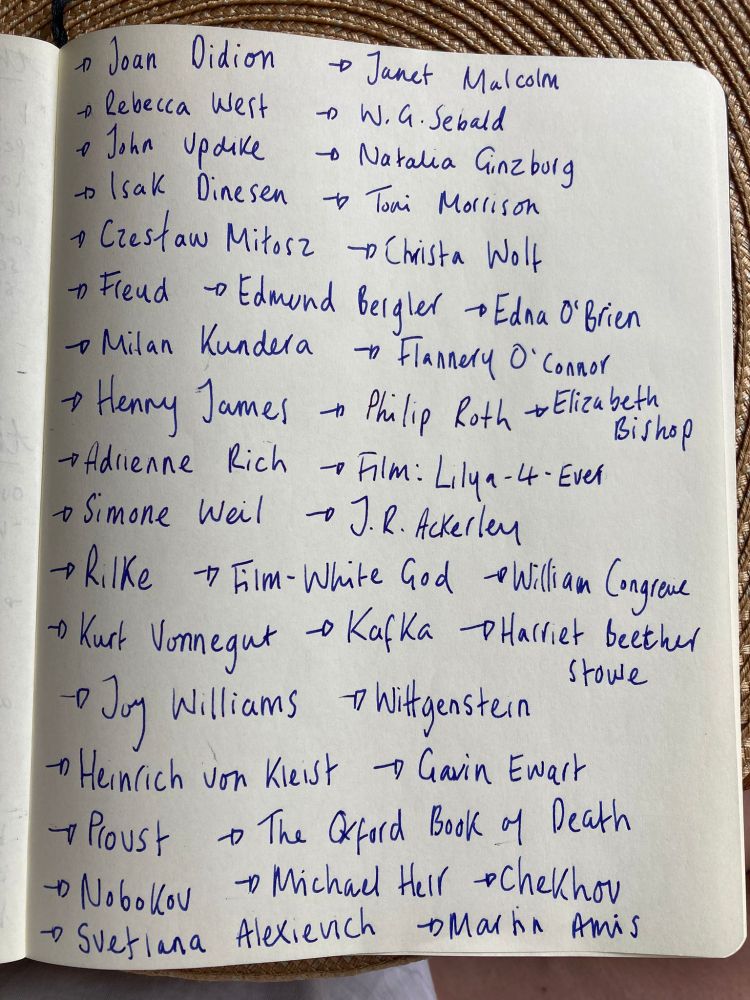 → Joan Didion → Janet Malcolm
→ Rebecca West → W.G. Sebald
→ John Updike → Natalia Ginzburg
→ Isak Dinesen → Toni Morrison
→ Czesław Miłosz → Christa Wolf
→ Freud → Edmund Bergler → Edna O'Brien
→ Milan Kundera → Flannery O'Connor
→ Henry James → Philip Roth → Elizabeth
Bishop
→ Adrienne Rich → Film: Lilya-4-Ever
→ Simone Weil → J.R. Ackerley
→ Rilke → Film-White God → William Congreve
→ Kurt Vonnegut → Kafka → Harriet Beether
Stowe
→ Joy Williams → Wittgenstein
→ Heinrich von Kleist → Gavin Ewart
→ Proust → The Oxford Book of Death
→ Nobokov → Michael Herr → Chekhov
→ Svetlana Alexievich → Martin Amis